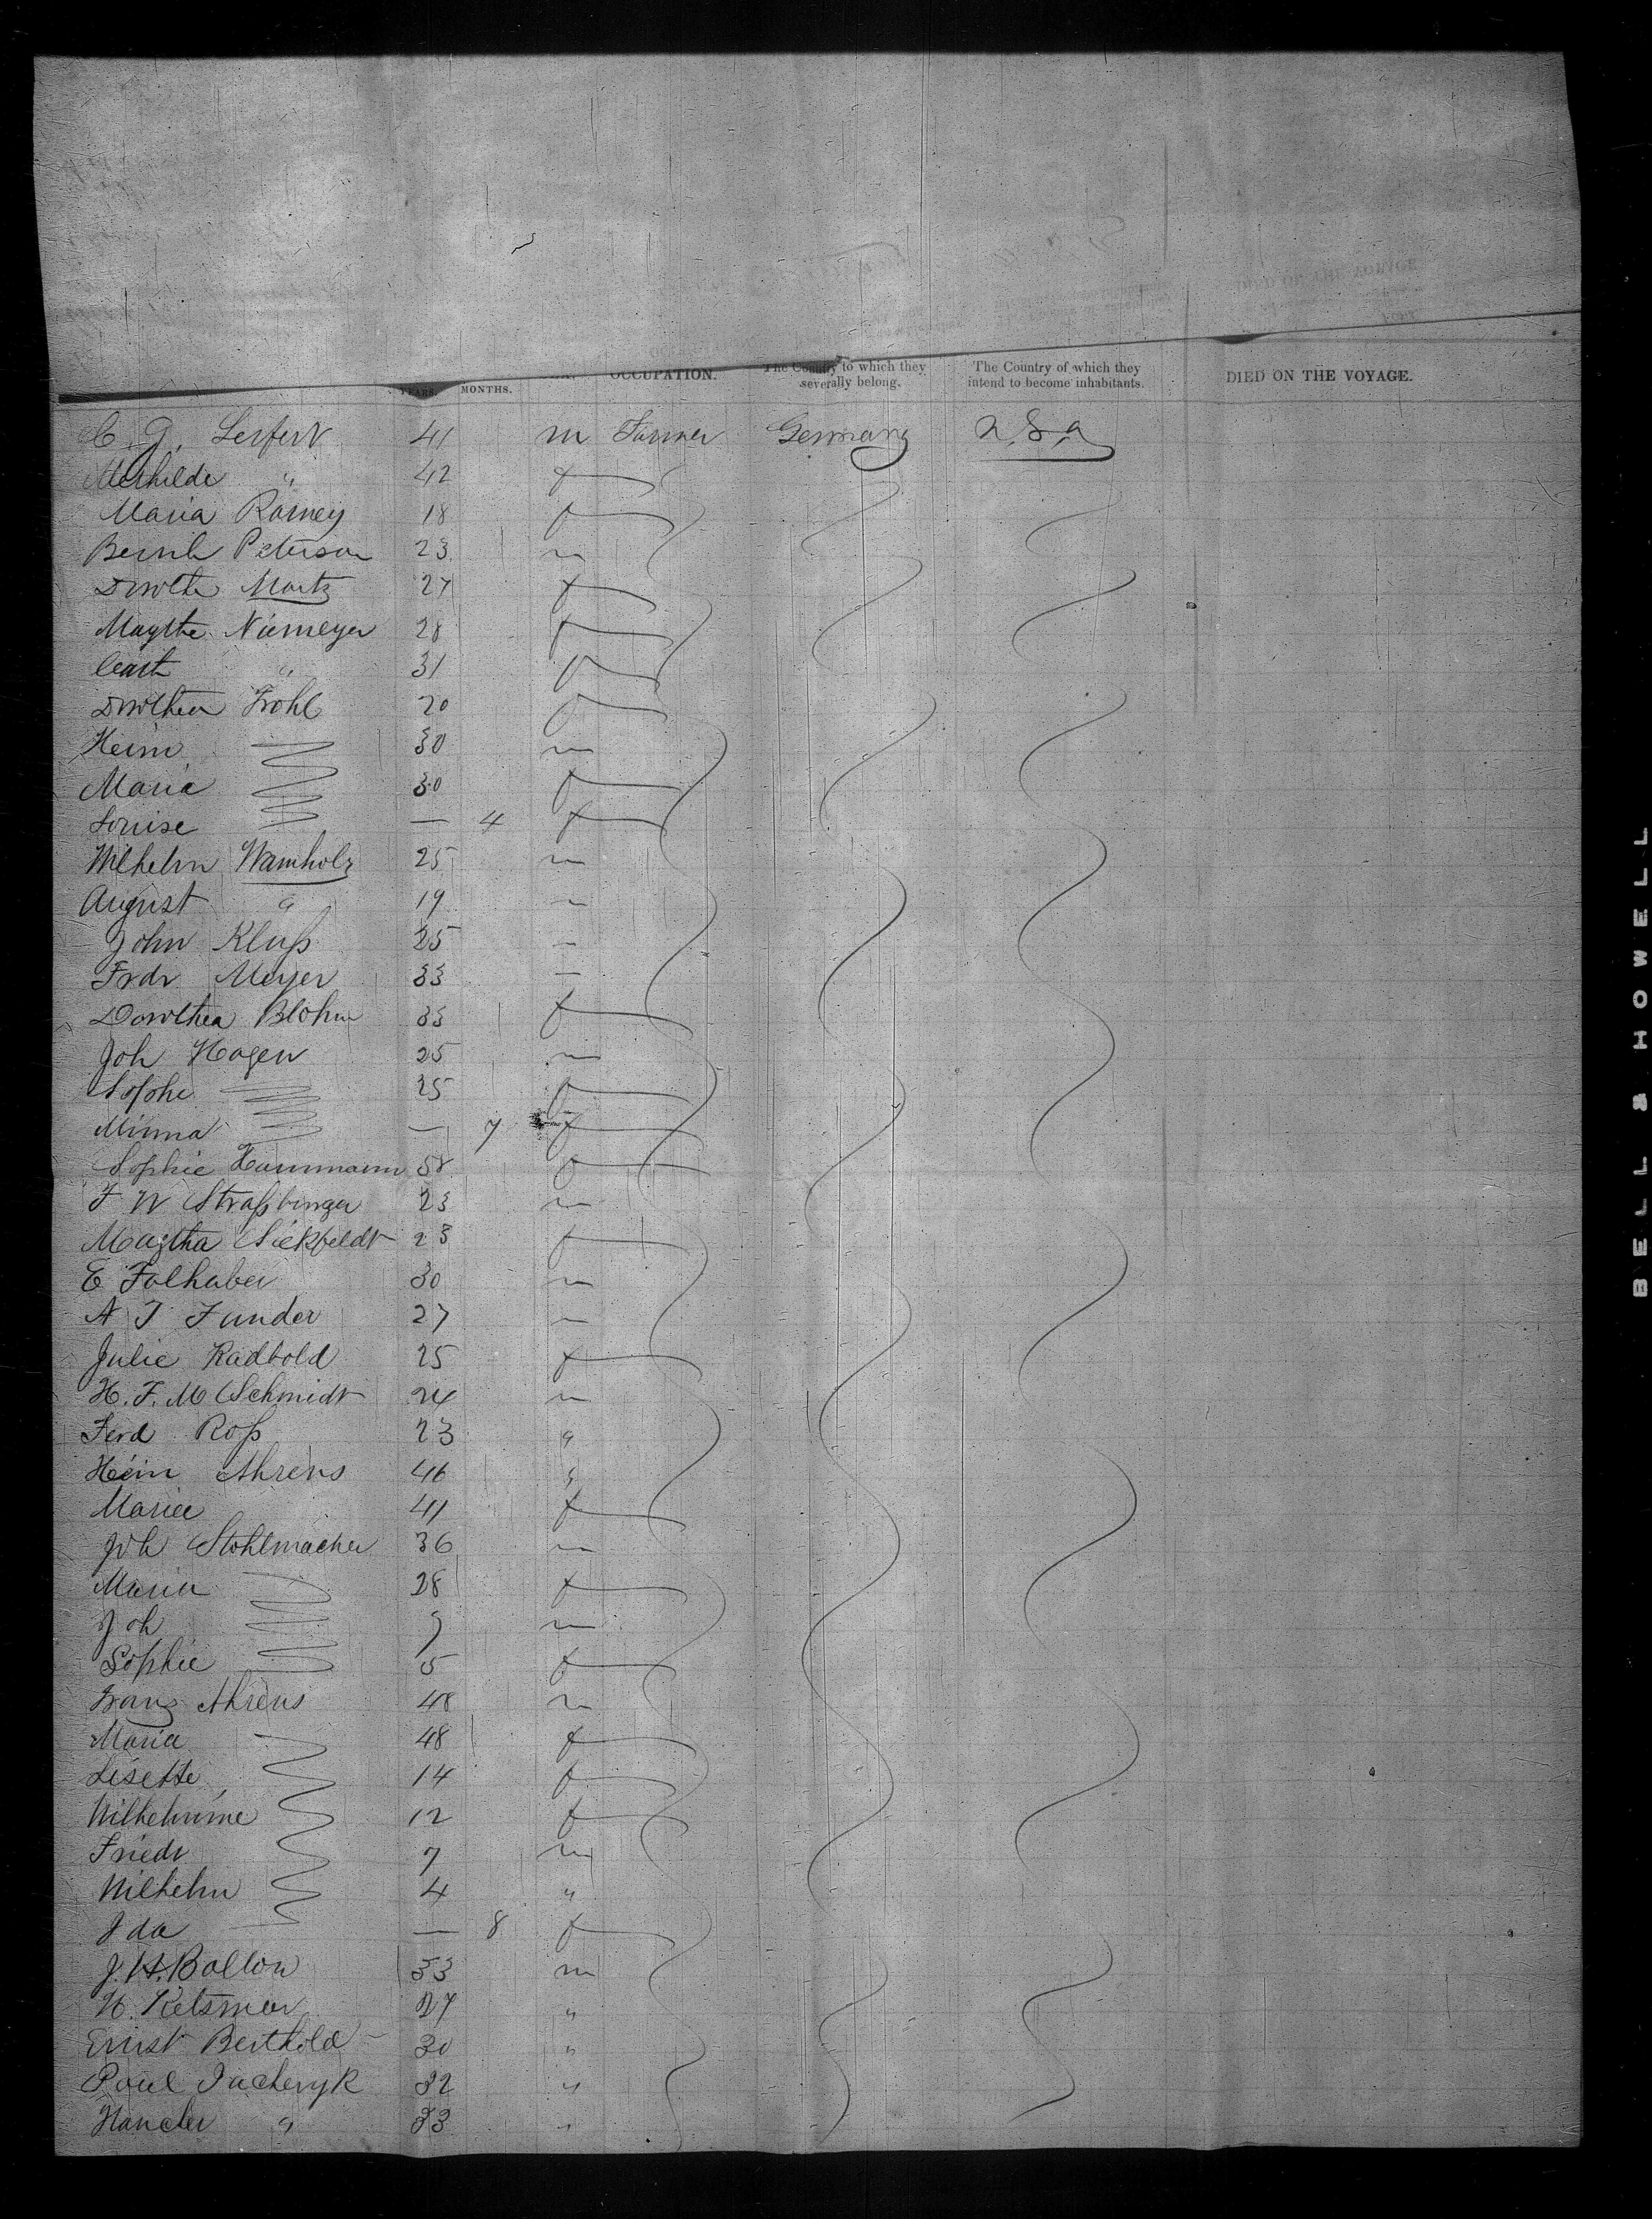 YEARS. MONTHS. OCCUPATION. The Country to which they severally belong. The Country of which they intend to become inhabitants. DIED ON THE VOYAGE.
C. G. Seifert 41 m Farmer Germany U.S.A
Mathilde " 42 f
Maria Ramey 18 f
Bernh Peterson 23 m
Dorothe Martz 27 f
Magthe Niemeyer 28 f
Cath " 31 f
Dorothea Frohl 20 f
Heinr 30 m
Maria 30 f
Louise — 4 f
Wilhelm Wamholz 25 m
August " 19 "
John Kluß 25 —
Fredr Meyer 33 —
Dorothea Blohm 33 f
Joh Hagen 25 m
Sophe 25 f
Minna — 7 f
Sophie Hammann 58 f
F W Straßburger 23 m
Magtha Sickfeldt 23 f
E Falhaber 30 m
A J Funder 27 "
Julie Radbold 25 f
H. F. M Schmidt 24 m
Ferd Roß 23 "
Hein Ahrens 46 "
Maria 41 f
Joh Stohlmacher 36 m
Maria 28 f
Joh 9 m
Sophie 5 f
Franz Ahrens 48 m
Maria 48 f
Lisette 14 f
Wilhelmine 12 f
Friedr 7 m
Wilhelm 4 "
Ida — 8 f
J. H. Ballow 33 m
H. Ketsmar 27 "
Ernst Berthold 30 "
Paul Jacheryk 32 "
" 33 "
BELL & HOWELL